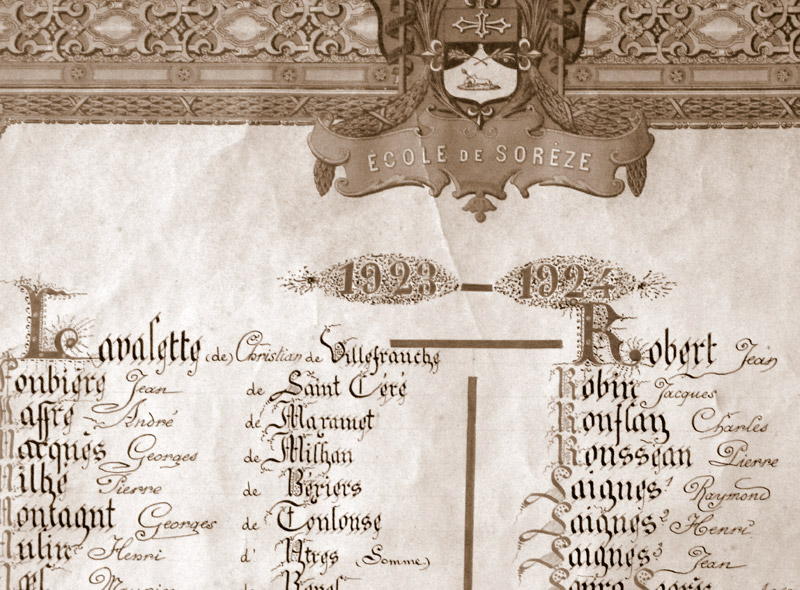 ÉCOLE DE SORÈZE
1923 — 1924
Lavalette (de) Christian de Villefranche
Loubière Jean de Saint Céré
Maffre André de Mazamet
Marquès Georges de Milhau
Milhe Pierre de Béziers
Montagnt Georges de Toulouse
Mulin Henri d' Ytres (Somme)
Maurice de Revel
Robert Jean
Robin Jacques
Rouflan Charles
Rousseau Pierre
Saignes¹ Raymond
Saignes² Henri
Saignes³ Jean